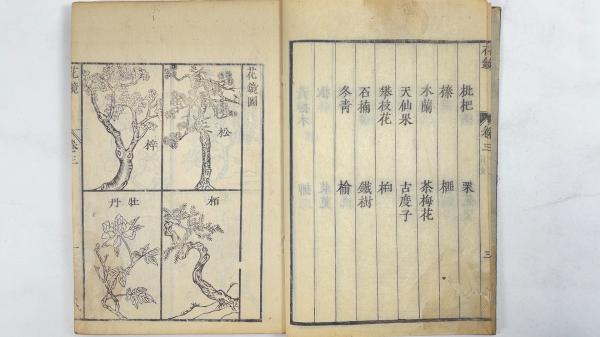 花鏡
卷三
三
枇杷 栗
榛 榧
木蘭 茶梅花
天仙果 古度子
攀枝花 桕
石楠 鐵樹
冬青 榆
花鏡圖
松
梓
栢
牡丹
花鏡
卷三
一